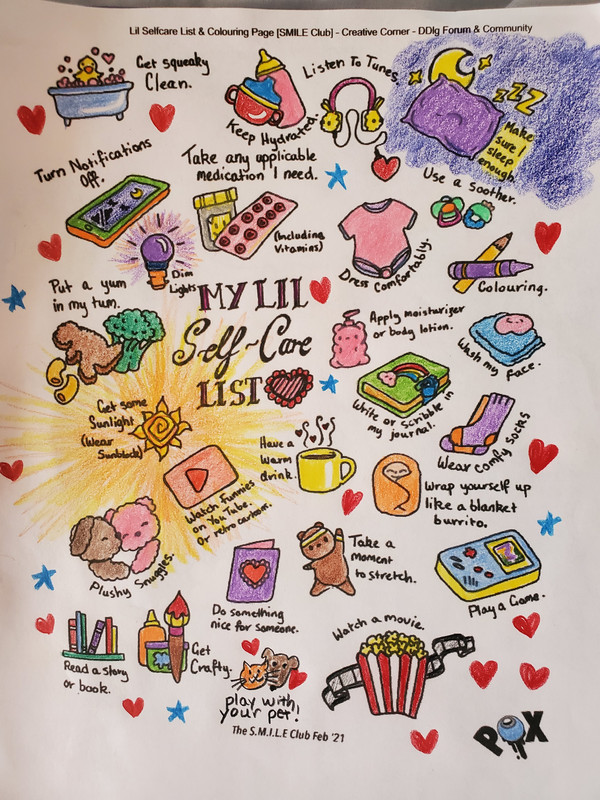 Lil Selfcare List & Colouring Page [SMILE Club] - Creative Corner - DDlg Forum & Community
Get squeaky
Clean.
Keep Hydrated.
Listen To Tunes.
ZZZ
Make
sure I
sleep
enough.
Turn Notifications
Off.
Take any applicable
medication I need.
(Including
Vitamins)
Use a soother.
Dress Comfortably.
Colouring.
Dim
Lights
Put a yum
in my tum.
MY LIL
Self-Care
LIST
Apply moisturizer
or body lotion.
Wash my face.
Write or scribble in
my journal.
Get some
Sunlight
(Wear
Sunblock)
Have a
warm
drink.
Wear comfy socks
Watch funnies
on YouTube.
or retro cartoon.
Wrap yourself up
like a blanket
burrito.
Plushy Snuggles.
Do something
nice for someone.
Take a
moment
to stretch.
Play a Game.
Read a story
or book.
Get
Crafty.
play with
your pet!
Watch a movie.
The S.M.I.L.E Club Feb '21
POX